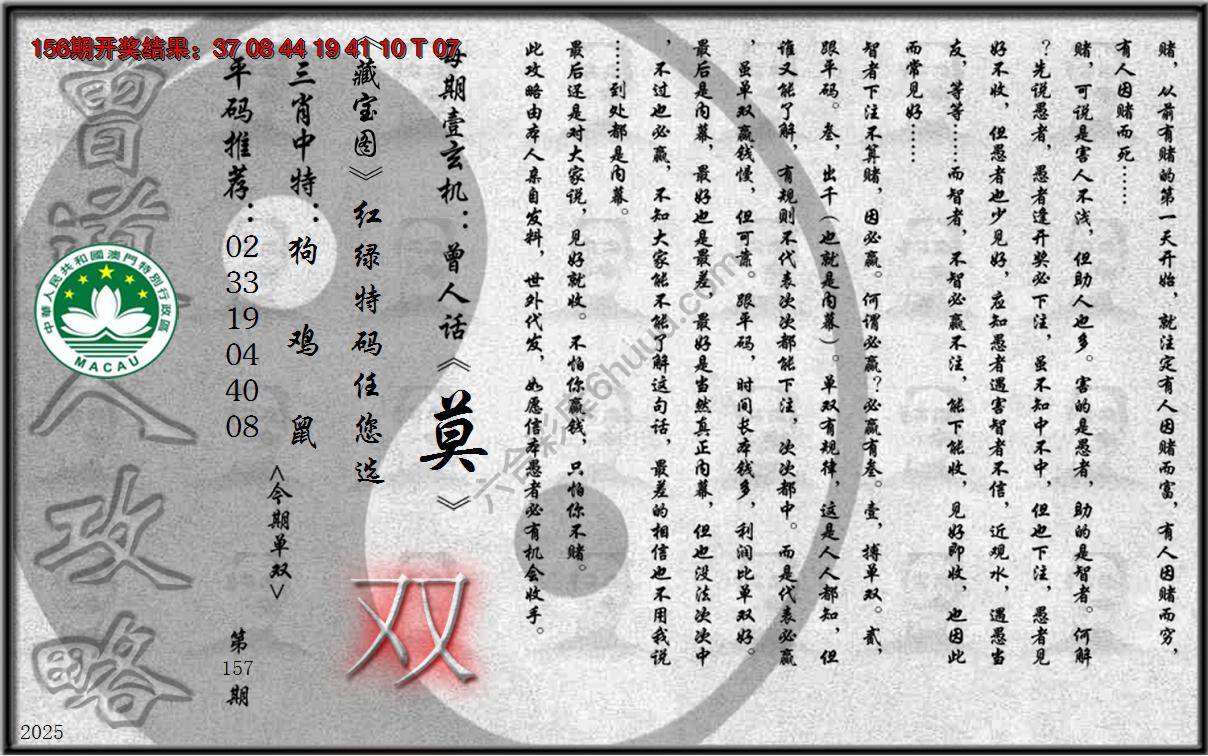 156期开奖结果：37 08 44 19 41 10 T 07
赌，从前有赌的第一天开始，就注定有人因赌而富，有人因赌而穷，
有人因赌而死……
赌，可说是害人不浅，但助人也多。害的是愚者，助的是智者。何解
？先说愚者，愚者逢开奖必下注，虽不知中不中，但也下注，愚者见
好不收，但愚者也少见好，应知愚者遇害智者不信，近观水，遇愚当
友，等等……而智者，不智必赢不注，能下能收，见好即收，也因此
而常见好……
智者下注不算赌，因必赢。何谓必赢？必赢有叁。壹，搏单双。贰，
跟平码。叁，出千（也就是内幕）。单双有规律，这是人人都知，但
谁又能了解，有规则不代表次次都能下注，次次都中。而是代表必赢
，虽单双赢钱慢，但可靠。跟平码，时间长本钱多，利润比单双好。
最后是内幕，最好也是最差，最好是当然真正内幕，但也没法次次中
，不过也必赢，不知大家能不能了解这句话，最差的相信也不用我说
……到处都是内幕。
最后还是对大家说，见好就收。不怕你赢钱，只怕你不赌。
此攻略由本人亲自发料，世外代发，如愿信本愚者必有机会收手。
每期壹玄机：曾人话《莫》
《藏宝图》红绿特码任您选
双
三肖中特：狗 鸡 鼠
<今期单双>
平码推荐：02 33 19 04 40 08
第157期
曾道人攻略
中華人民共和國澳門特別行政區
MACAU
2025